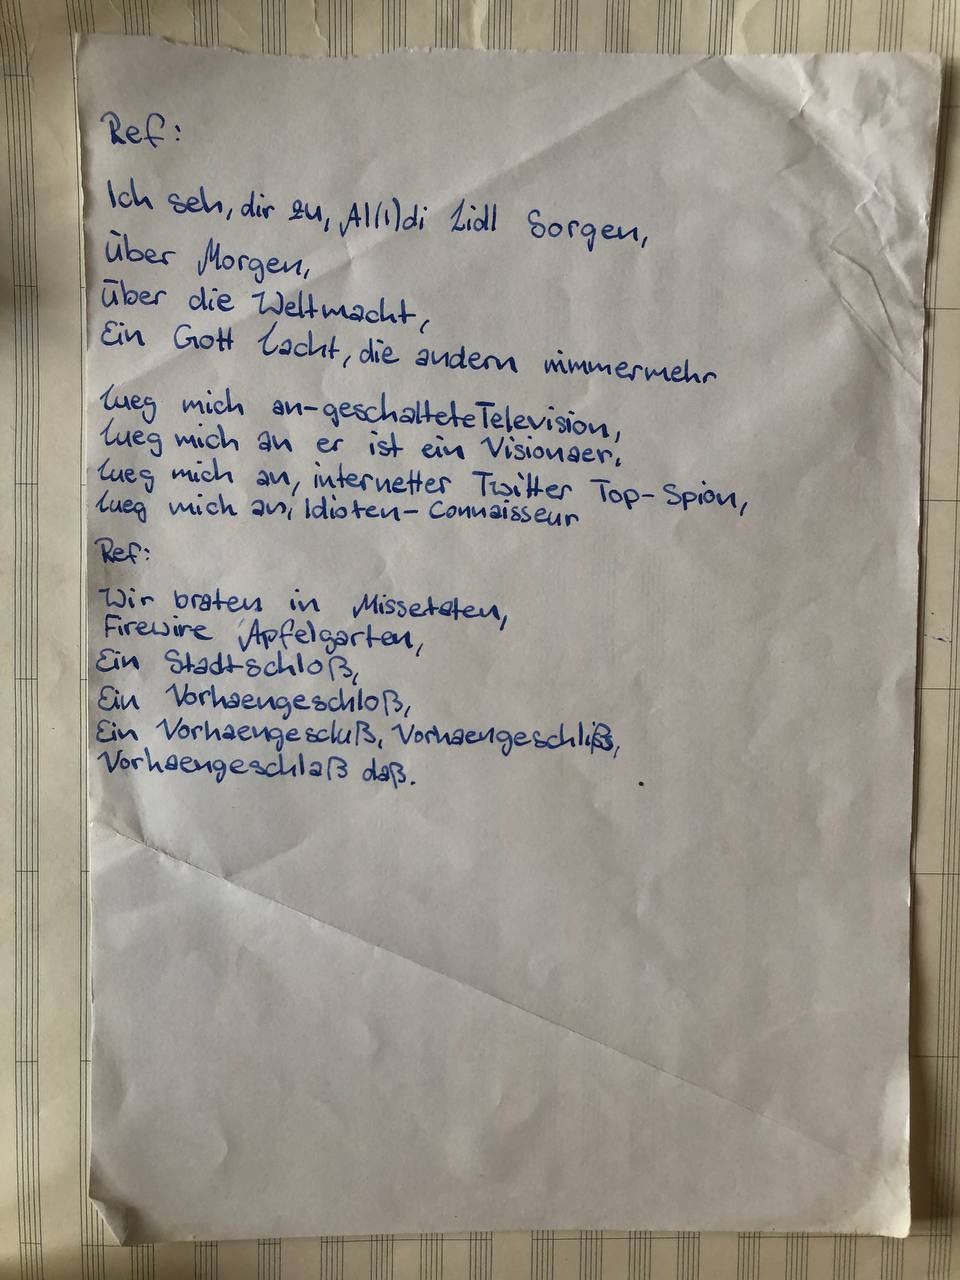 Ref:
Ich seh, dir zu, Al(i)di Lidl Sorgen,
Über Morgen,
Über die Weltmacht,
Ein Gott Lacht, die andern nimmermehr
Lueg mich an-geschaltete Television,
Lueg mich an er ist ein Visionaer,
Lueg mich an, internetter Twitter Top-Spion,
Lueg mich an, Idioten-Connaisseur
Ref:
Wir braten in Missetaten,
Firewire Apfelgarten,
Ein Stadtschloß,
Ein Vorhaengeschloß,
Ein Vorhaengescluß, Vorhaengeschliß,
Vorhaengeschlaß daß.